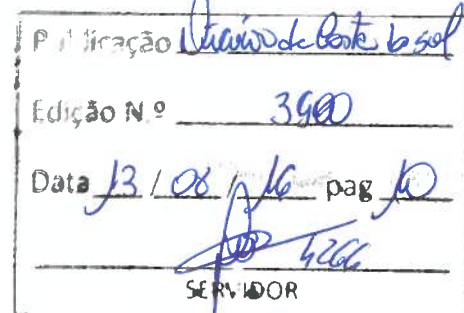 Publicação Diário da Costa do sol
Edição N.º 3980
Data 13 / 08 / 16 pag 10
4266
SERVIDOR